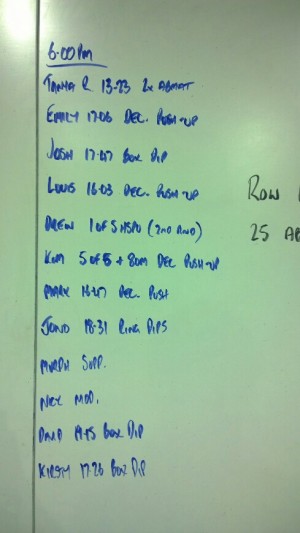 6:00pm
TANYA R 13-23 2x ABMAT
EMILY 17:06 DEC. PUSH-UP
JOSH 17-47 BOX DIP
LOUIS 16:03 DEC. PUSH-UP
DREW 1 OF 5 HSPU (2ND RND)
KIM 5 OF 5 + 80M DEC PUSH-UP
MARK DEC. PUSH
JONO 18-31 RING DIPS
MURPH SUPP.
MOD.
DAVID BOX DIP
KIRSTY 17-26 BOX DIP
ROW
25 AB